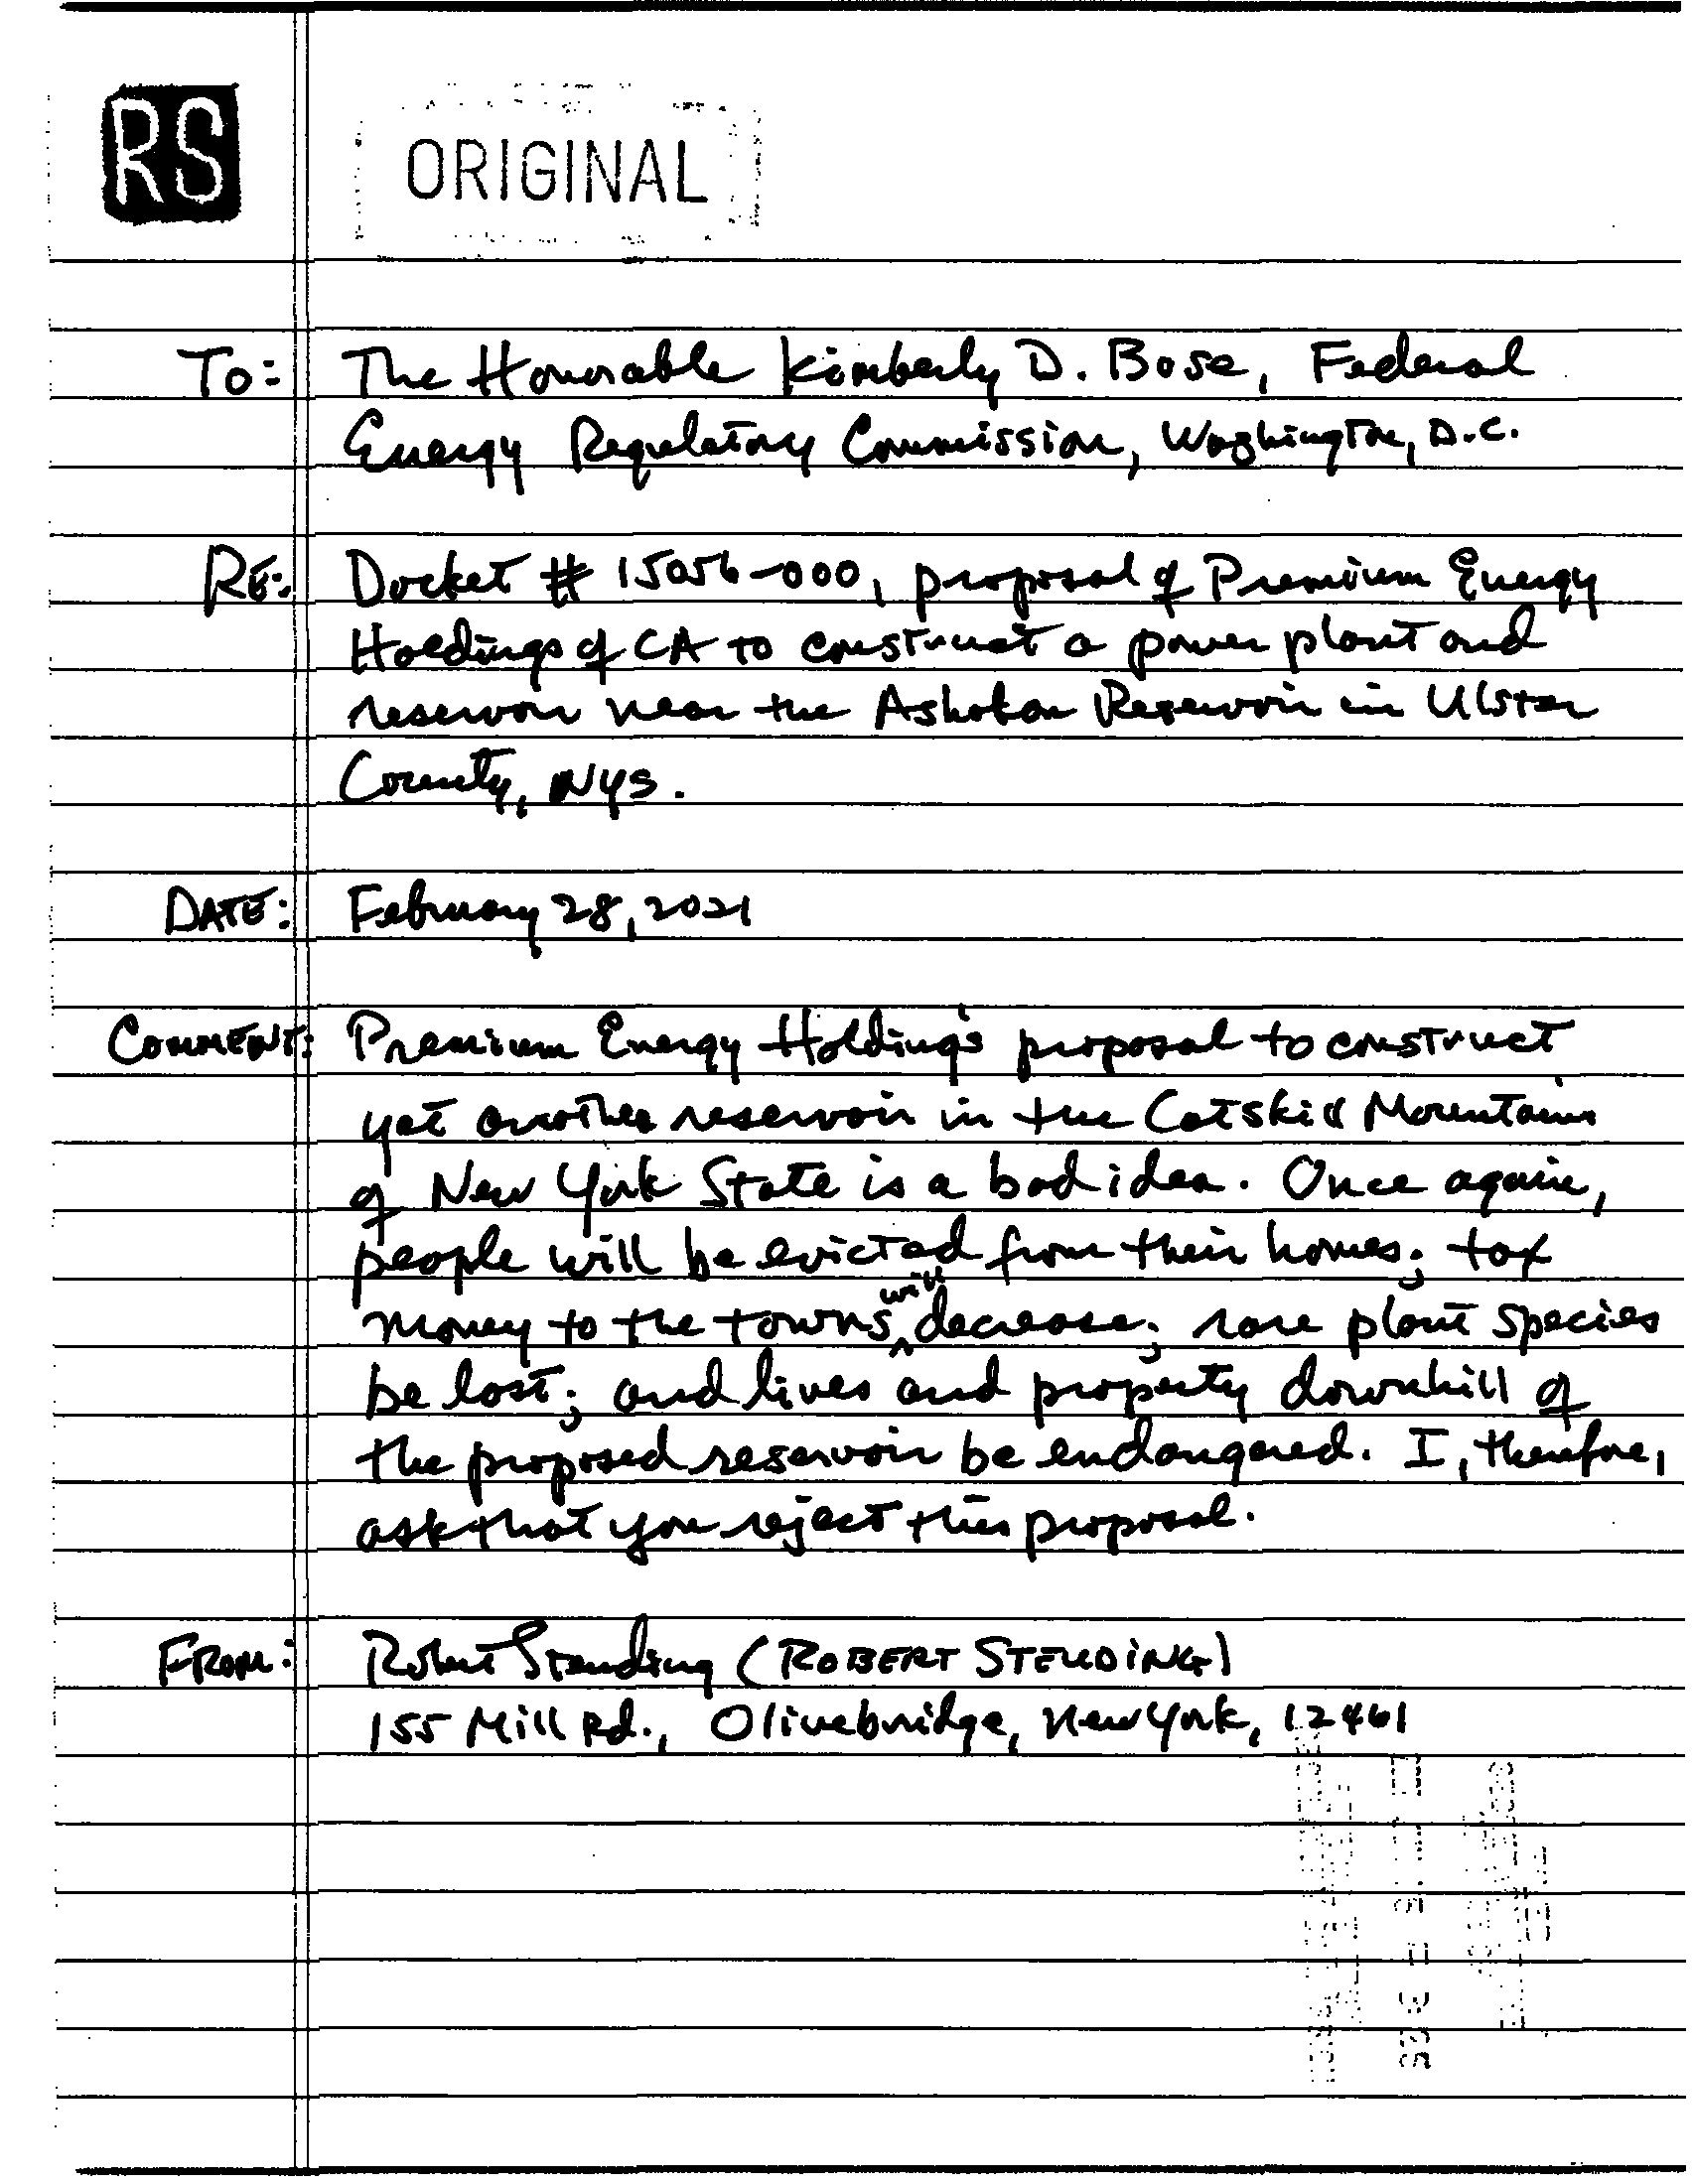 RS
ORIGINAL
To: The Honorable Kimberly D. Bose, Federal
Energy Regulatory Commission, Washington, D.C.
RE: Docket # 15056-000, proposal of Premium Energy
Holdings of CA to construct a power plant and
reservoir near the Ashokan Reservoir in Ulster
County, NYS.
DATE: February 28, 2021
COMMENT: Premium Energy Holding's proposal to construct
yet another reservoir in the Catskill Mountains
of New York State is a bad idea. Once again,
people will be evicted from their homes; tax
money to the towns will decrease; rare plant species
be lost; and lives and property downhill of
the proposed reservoir be endangered. I, therefore,
ask that you reject this proposal.
FROM: Robert Steuding (ROBERT STEUDING)
155 Mill Rd., Olivebridge, New York, 12461